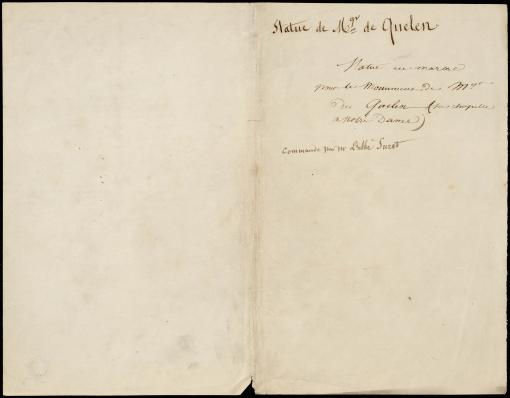 Statue de Mgr de Quelen
Statue en marbre
pour le Monument de Mgr
de Quelen (sa chapelle
a Notre Dame)
Commandé par Mr L'abbé Surat